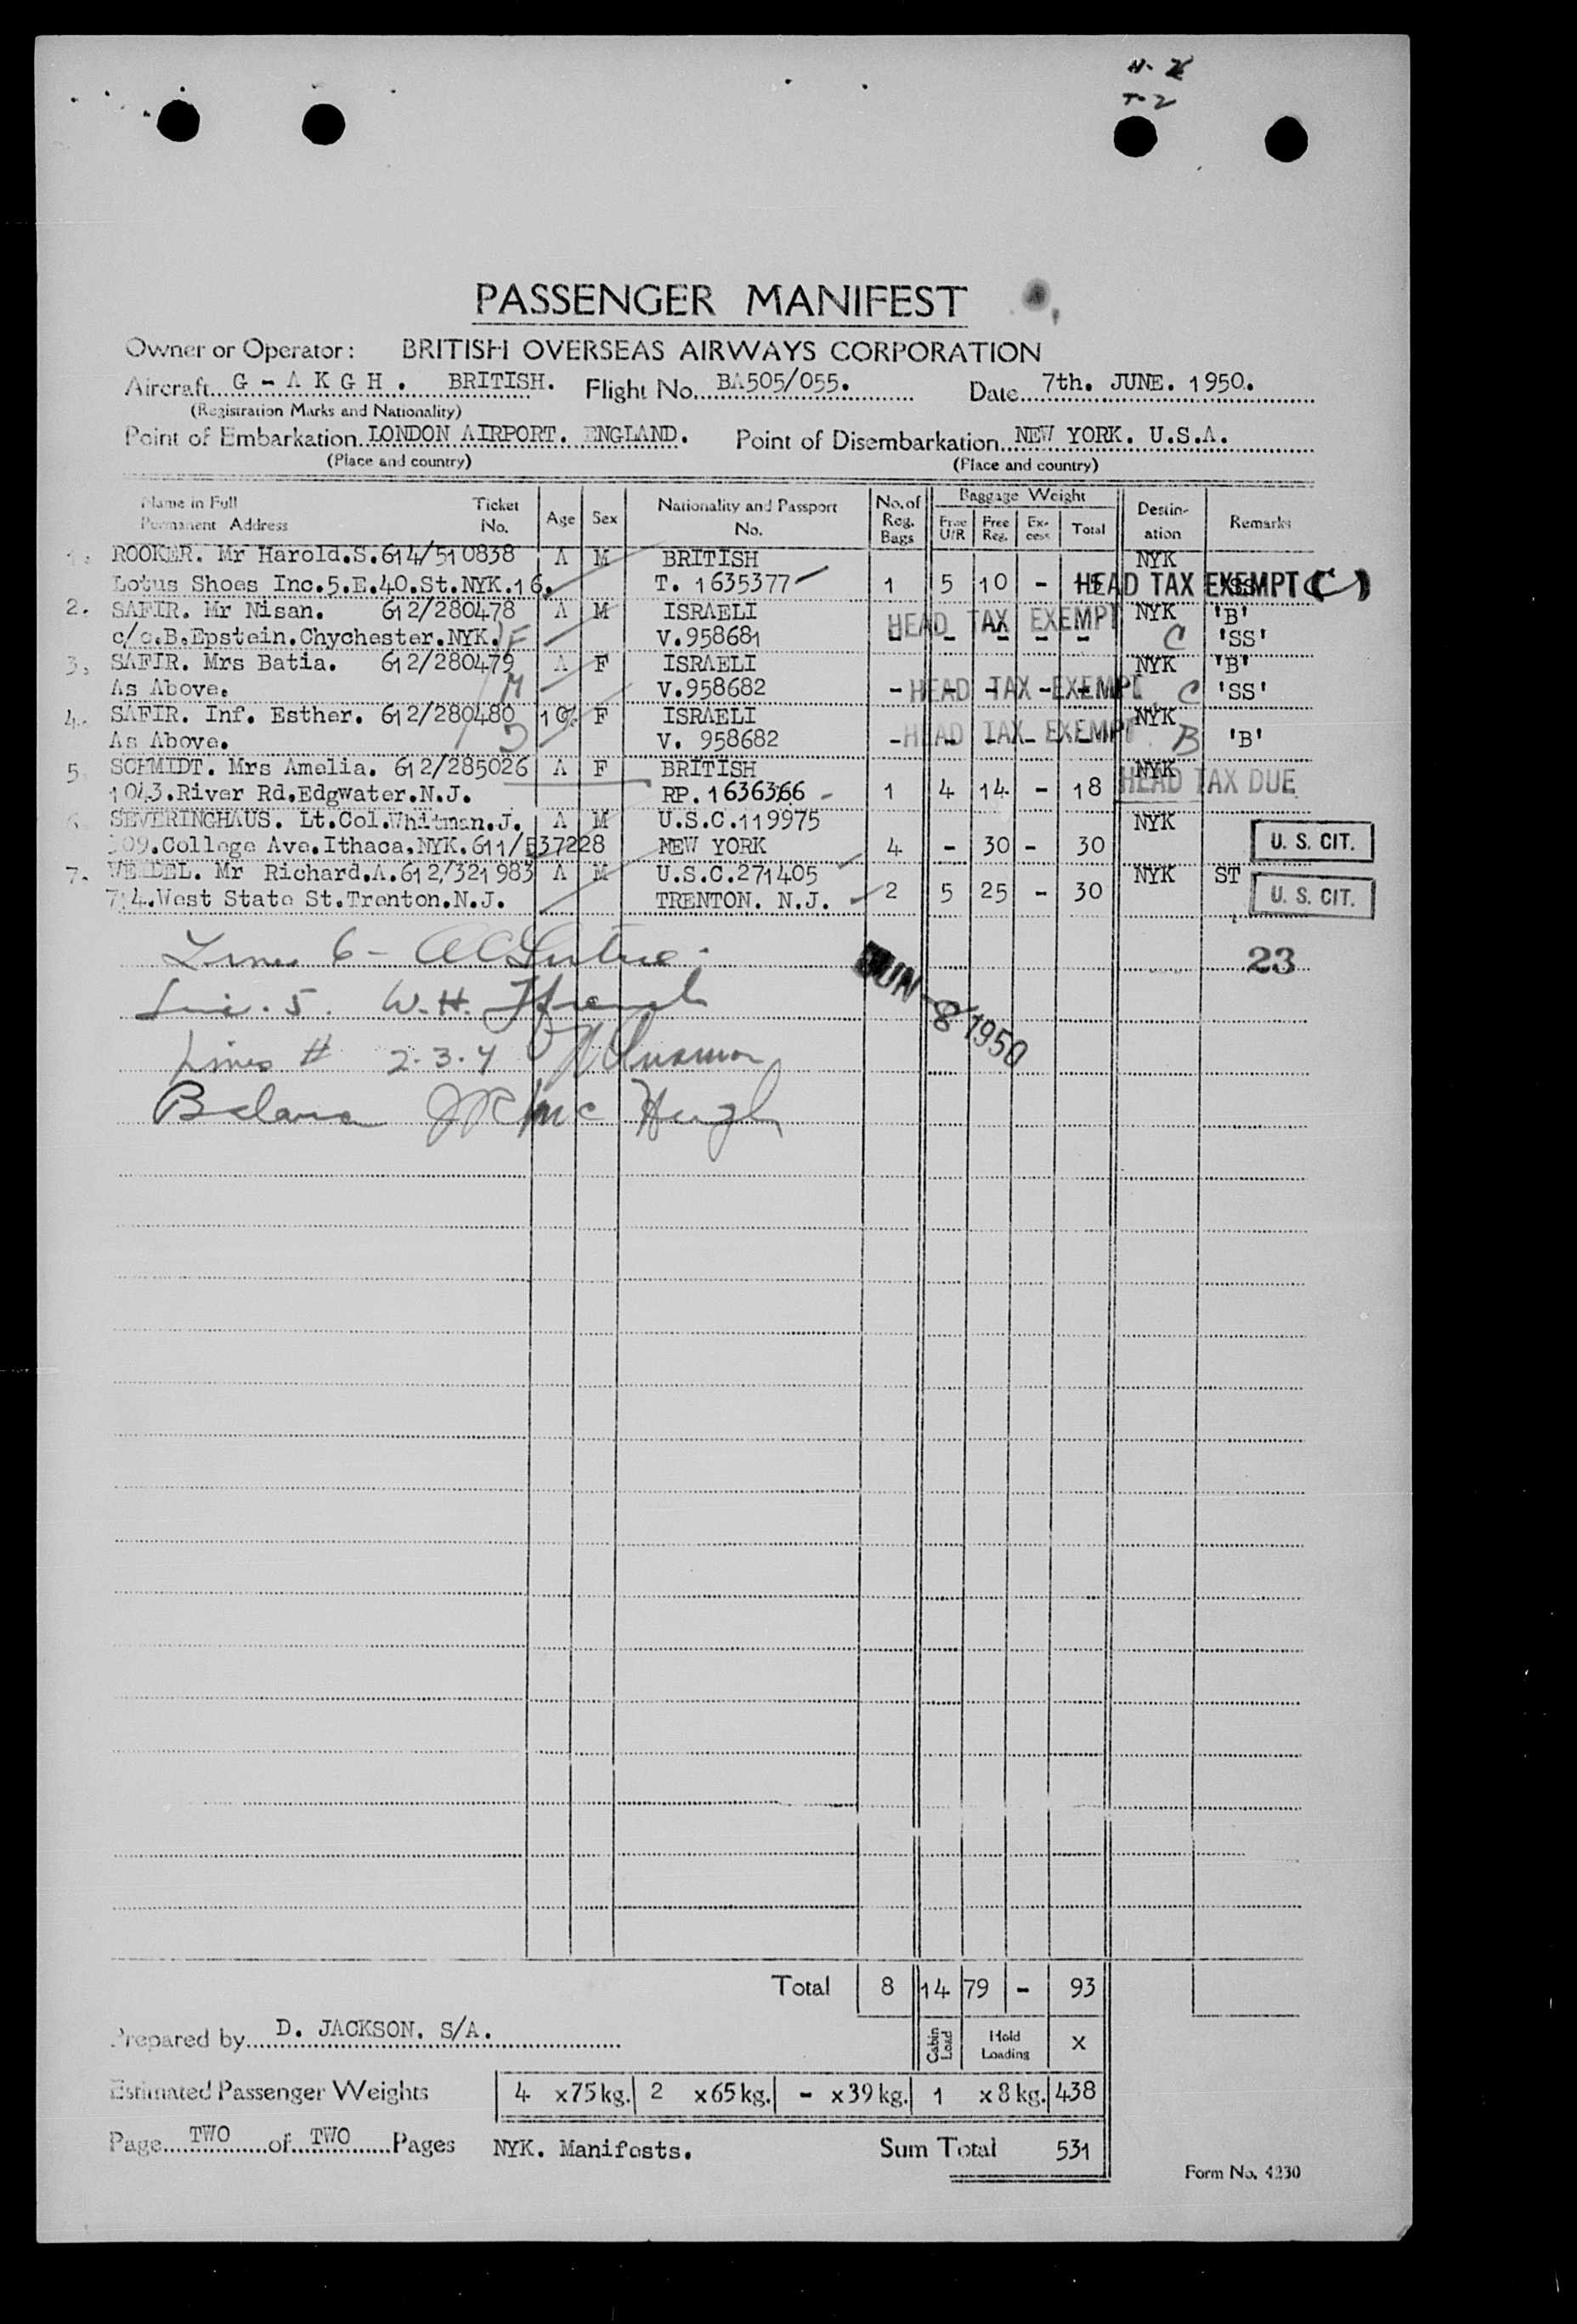 T-2
PASSENGER MANIFEST
Owner or Operator: BRITISH OVERSEAS AIRWAYS CORPORATION
Aircraft G - A K G H . BRITISH. Flight No. BA505/055. Date 7th. JUNE. 1950.
(Registration Marks and Nationality)
Point of Embarkation LONDON AIRPORT. ENGLAND. Point of Disembarkation NEW YORK. U.S.A.
(Place and country) (Place and country)
Name in Full Permanent Address Ticket No. Age Sex Nationality and Passport No. No. of Reg. Bags Baggage Weight Free U/R Free Reg. Ex-cess Total Destin-ation Remarks
1. ROOKER. Mr Harold.S. 614/510838 A M BRITISH NYK
Lotus Shoes Inc.5.E.40.St.NYK.16. T. 1635377 1 5 10 - 15 HEAD TAX EXEMPT C
2. SAFIR. Mr Nisan. 612/280478 A M ISRAELI HEAD TAX EXEMPT NYK 'B'
c/o.B.Epstein.Chychester.NYK. F V.958681 - - - - - C 'SS'
3. SAFIR. Mrs Batia. 612/280479 A F ISRAELI NYK 'B'
As Above. M V.958682 - - - - - HEAD TAX EXEMPT C 'SS'
4. SAFIR. Inf. Esther. 612/280480 F ISRAELI NYK
As Above. D V. 958682 - - - - - HEAD TAX EXEMPT B 'B'
5 SCHMIDT. Mrs Amelia. 612/285026 A F BRITISH NYK
1043.River Rd.Edgwater.N.J. RP. 1636366 - 1 4 14 - 18 HEAD TAX DUE
6. SEVERINGHAUS. Lt.Col.Whitman.J. A M U.S.C.119975 NYK
309.College Ave.Ithaca.NYK.611/537228 NEW YORK 4 - 30 - 30 U. S. CIT.
7. WENDEL. Mr Richard.A.612/321983 A M U.S.C.271405 NYK ST
714.West State St.Trenton.N.J. TRENTON. N.J. 2 5 25 - 30 U. S. CIT.
6 - 23
JUN - 8 1950
5. W.H. French
Lines # 2.3.4
Balance JR Mc Hugh
Total 8 14 79 - 93
Prepared by D. JACKSON. S/A. Cabin Load Hold Loading X
Estimated Passenger Weights 4 x 75 kg. 2 x 65 kg. - x 39 kg. 1 x 8 kg. 438
Page TWO of TWO Pages NYK. Manifests. Sum Total 531
Form No. 4230